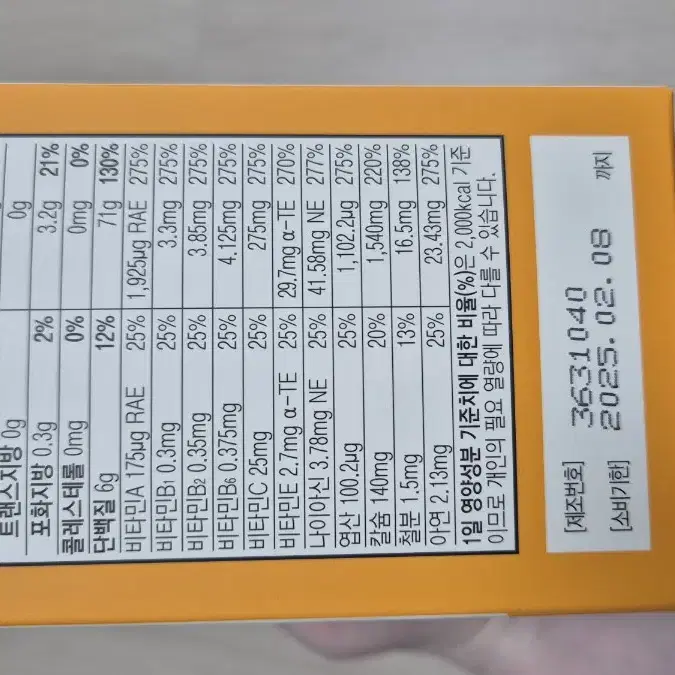 트랜스지방 0g 0g
포화지방 0.3g 2% 3.2g 21%
콜레스테롤 0mg 0% 0mg 0%
단백질 6g 12% 71g 130%
비타민A 175μg RAE 25% 1,925μg RAE 275%
비타민B1 0.3mg 25% 3.3mg 275%
비타민B2 0.35mg 25% 3.85mg 275%
비타민B6 0.375mg 25% 4.125mg 275%
비타민C 25mg 25% 275mg 275%
비타민E 2.7mg α-TE 25% 29.7mg α-TE 270%
나이아신 3.78mg NE 25% 41.58mg NE 277%
엽산 100.2μg 25% 1,102.2μg 275%
칼슘 140mg 20% 1,540mg 220%
철분 1.5mg 13% 16.5mg 138%
아연 2.13mg 25% 23.43mg 275%
1일 영양성분 기준치에 대한 비율(%)은 2,000kcal 기준
이므로 개인의 필요 열량에 따라 다를 수 있습니다.
[제조번호] 3631040
[소비기한] 2025.02.08 까지